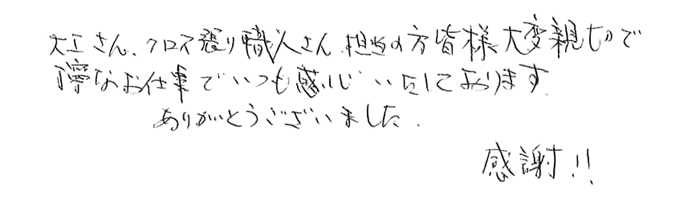 大工さん、クロス張り職人さん、担当の方皆様大変親切で
丁寧なお仕事でいつも感心いたしております。
ありがとうございました。
感謝!!